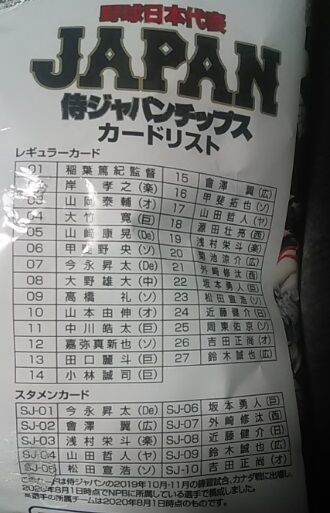 野球日本代表
JAPAN
侍ジャパンチップス
カードリスト
レギュラーカード
01 稲葉篤紀監督
02 岸 孝之(楽)
03 山岡泰輔(オ)
04 大竹 寛(巨)
05 山﨑康晃(De)
06 甲斐野 央(ソ)
07 今永昇太(De)
08 大野雄大(中)
09 高橋 礼(ソ)
10 山本由伸(オ)
11 中川皓太(巨)
12 嘉弥真新也(ソ)
13 田口麗斗(巨)
14 小林誠司(巨)
15 會澤 翼(広)
16 甲斐拓也(ソ)
17 山田哲人(ヤ)
18 源田壮亮(西)
19 浅村栄斗(楽)
20 菊池涼介(広)
21 外崎修汰(西)
22 坂本勇人(巨)
23 松田宣浩(ソ)
24 近藤健介(日)
25 周東佑京(ソ)
26 吉田正尚(オ)
27 鈴木誠也(広)
スタメンカード
SJ-01 今永昇太(De)
SJ-02 會澤 翼(広)
SJ-03 浅村栄斗(楽)
SJ-04 山田哲人(ヤ)
SJ-05 松田宣浩(ソ)
SJ-06 坂本勇人(巨)
SJ-07 外崎修汰(西)
SJ-08 近藤健介(日)
SJ-09 鈴木誠也(広)
SJ-10 吉田正尚(オ)
このカードは侍ジャパンの2019年10・11月の練習試合、カナダ戦に出場し、
2020年8月1日時点でNPBに所属している選手で構成しました。
※選手の所属チームは2020年8月1日時点のものです。